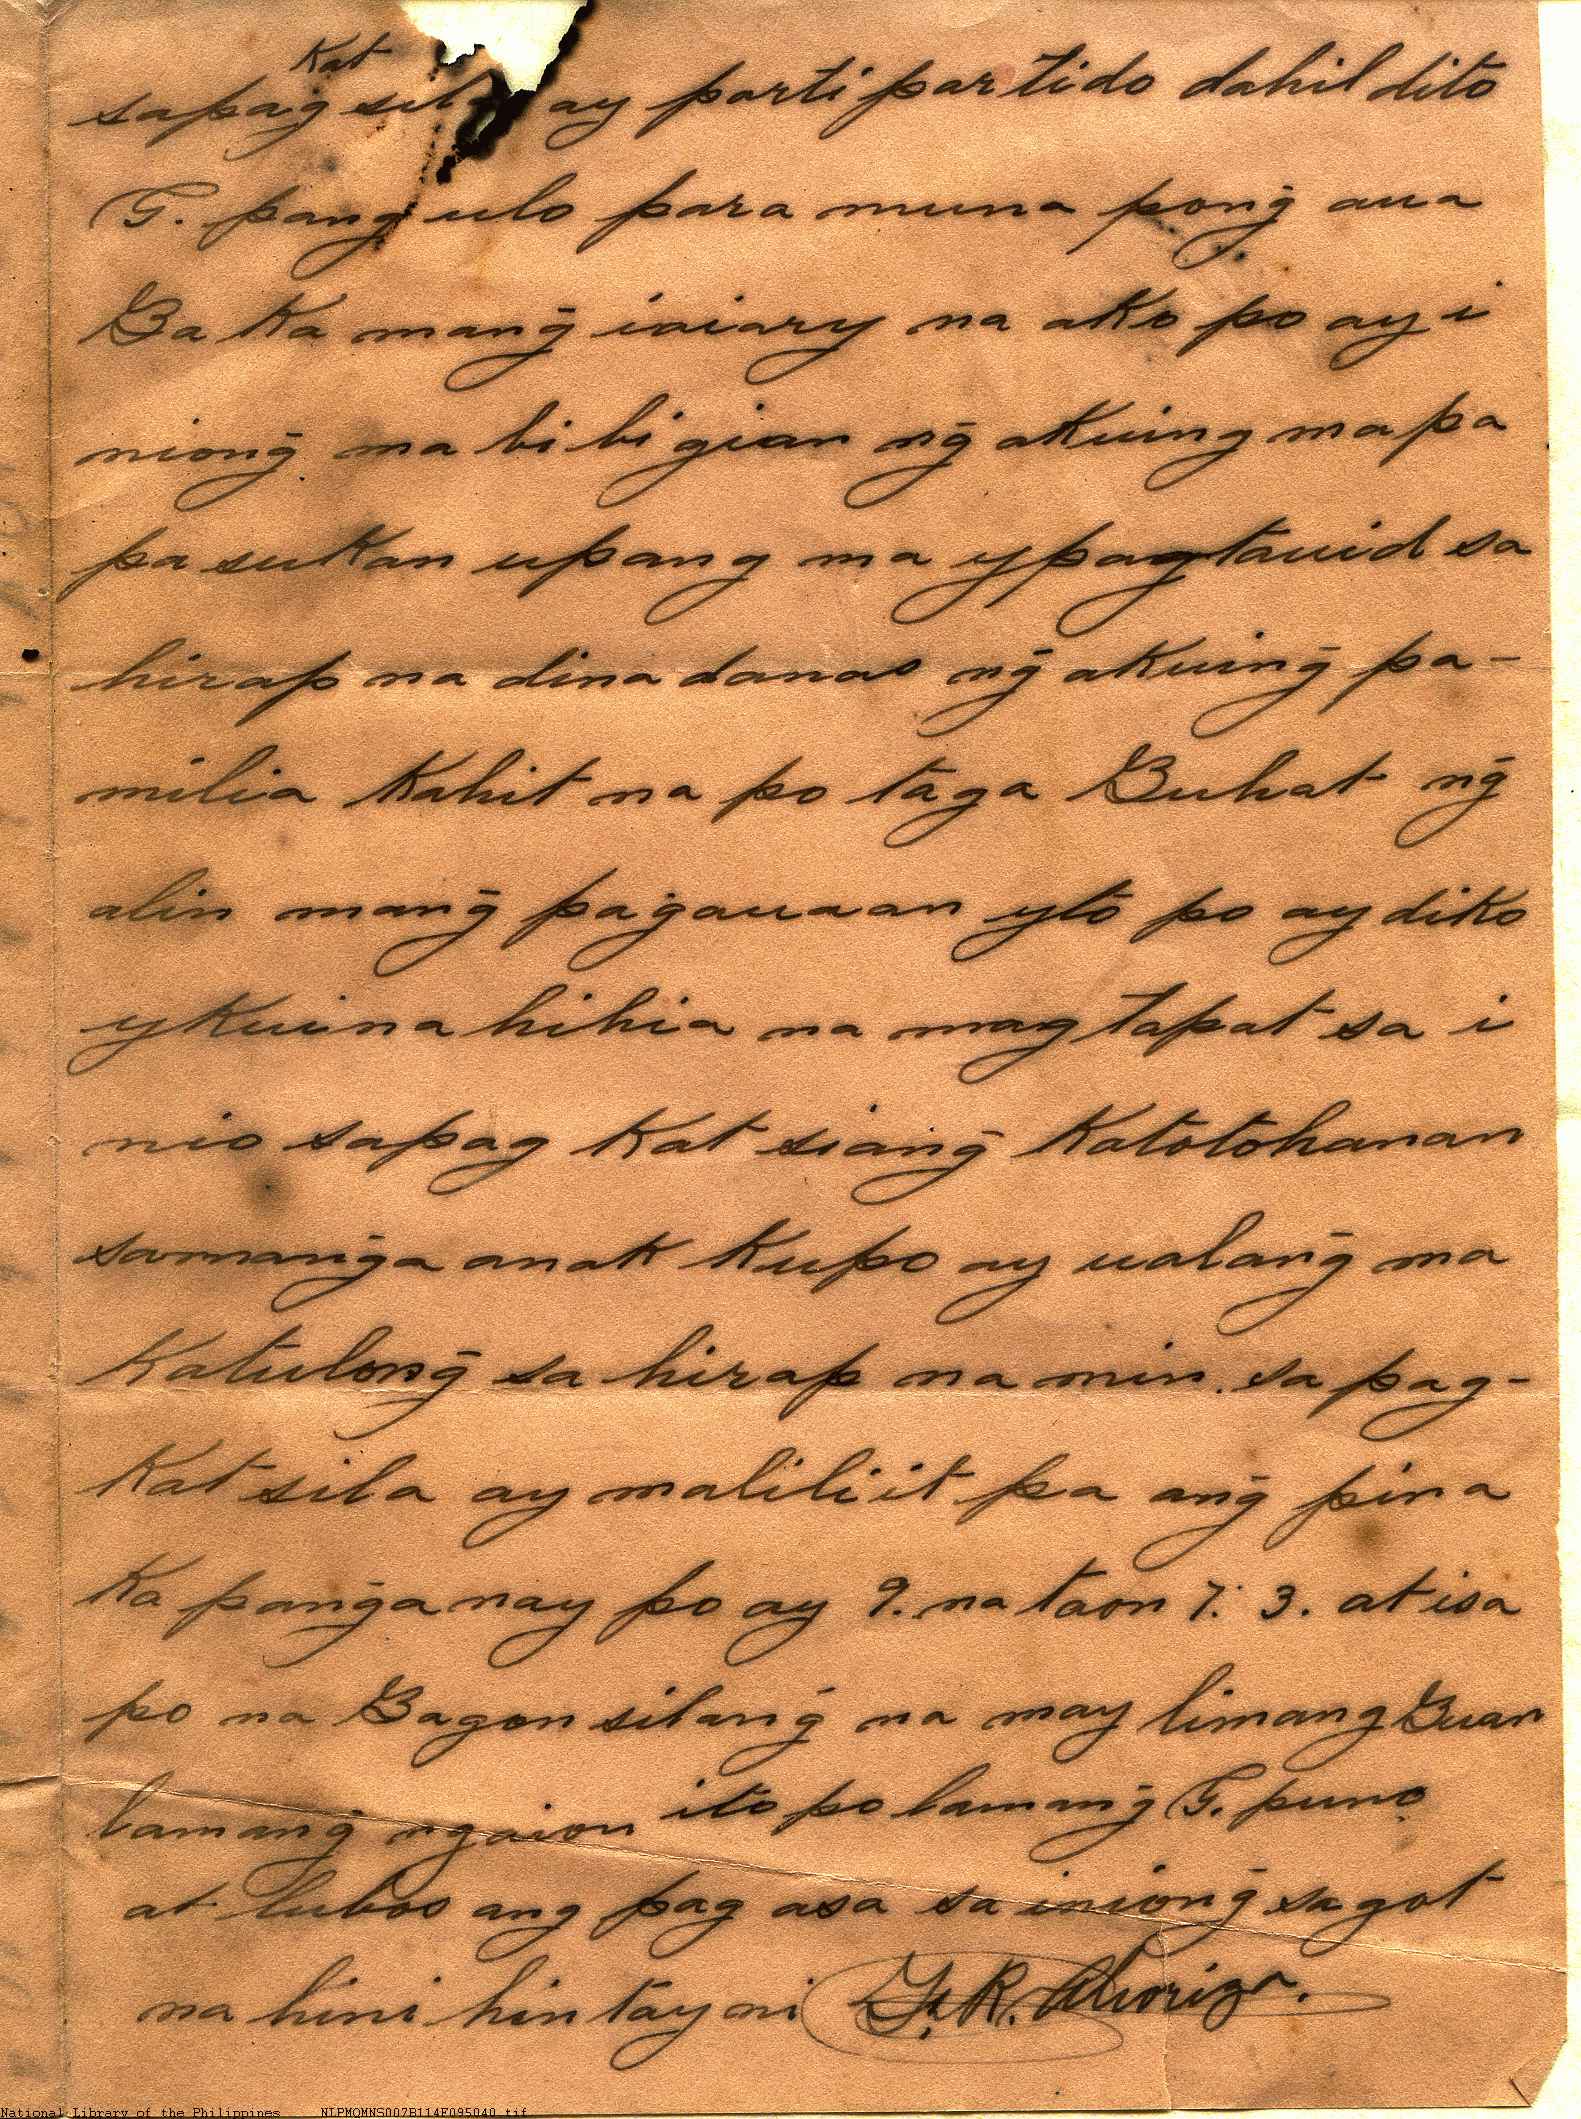 Kat
sapag sila ay parti partido dahil dito
G. pang ulo para muna pong̃ aua
Ba Ka mang̃ iaiary na aKo po ay i
niong̃ ma bi bi gian ng̃ aKuing mapa
pa suKan upang ma ypagtauid sa
hirap na dina danas ng̃ aKuing̃ pa-
milia Kahit na po taga Buhat ng̃
alin mang̃ pag̃auaan yto po ay diKo
yKuina hihia na mag tapat sa i
nio sapag Kat siang̃ Katotohanan
samang̃a anak Kupo ay ualang̃ ma
Katulong̃ sa hirap na min. sa pag-
Kat sila ay maliliit pa ang̃ pina
Ka pang̃a nay po ay 9. na taon 7. 3. at isa
po na Bagon silang̃ na may limang Buan
lamang̃ ngaion ito po lamang̃ G. puno
at lubos ang pag asa sa iniong̃ sagot
na hini hin tay ni
National Library of the Philippines NLPMQMNS007B114F095040.tif